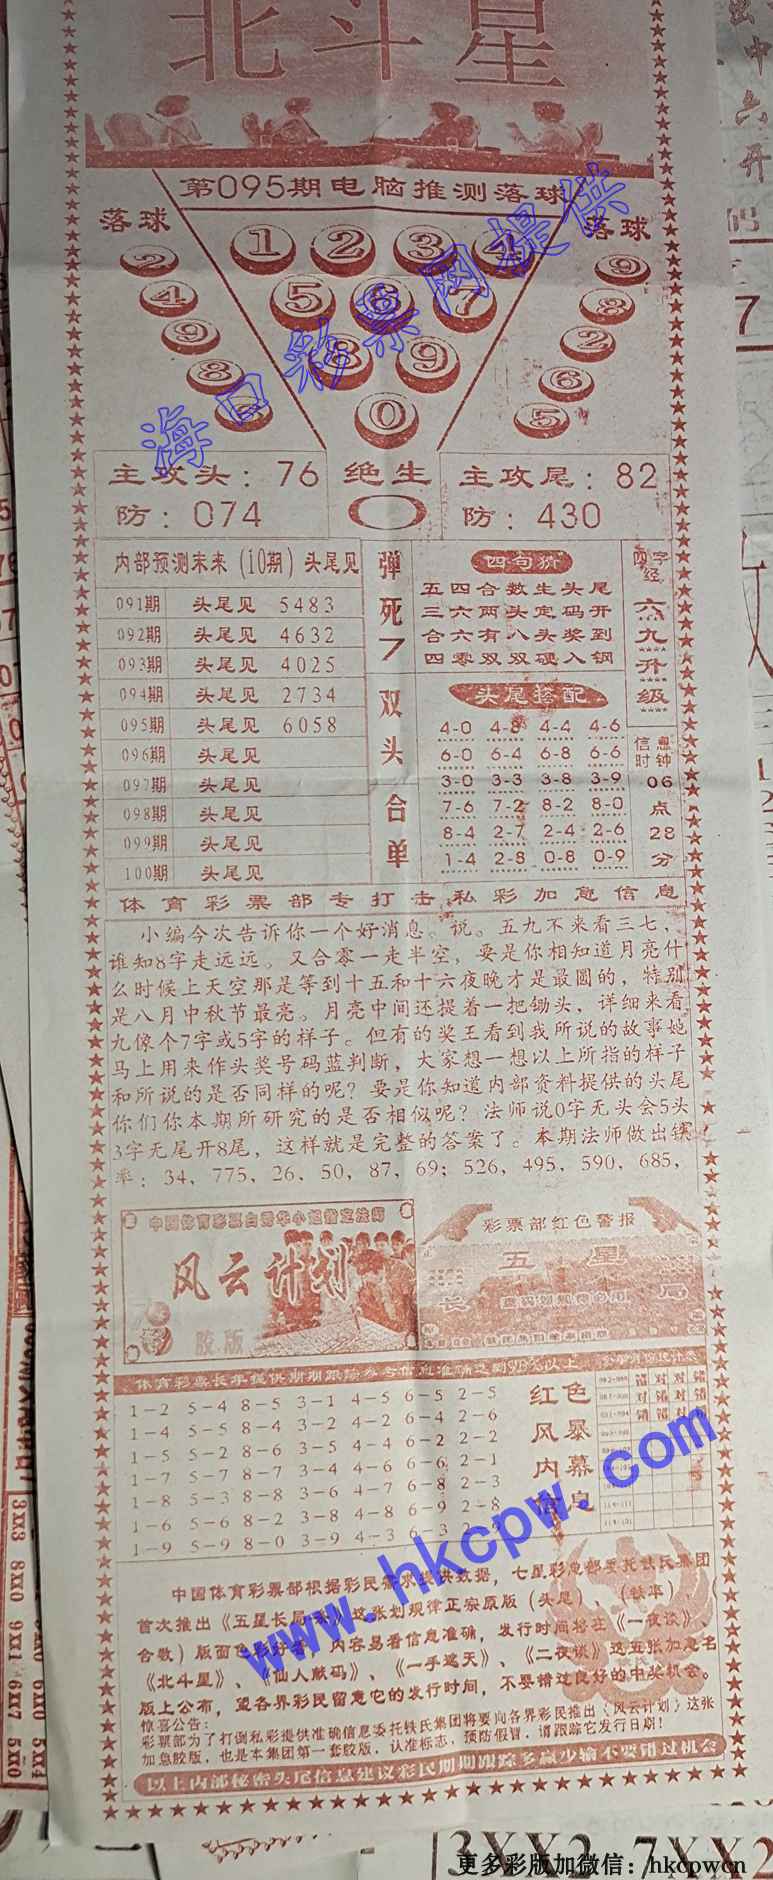 北斗星
第095期电脑推测落球
落球
落球
1 2 3 4
5 6 7
8 9
0
2
4
9
8
9
8
2
6
5
海口彩票网提供
主攻头：76
防：074
绝生
0
主攻尾：82
防：430
内部预测未来（10期）头尾见
091期 头尾见 5483
092期 头尾见 4632
093期 头尾见 4025
094期 头尾见 2734
095期 头尾见 6058
096期 头尾见
097期 头尾见
098期 头尾见
099期 头尾见
100期 头尾见
弹死7双头合单
四句猜
五四合数生头尾
三六两头定码开
合六有八头奖到
四零双双硬入钢
头尾搭配
4-0 4-8 4-4 4-6
6-0 6-4 6-8 6-6
3-0 3-3 3-8 3-9
7-6 7-2 8-2 8-0
8-4 2-7 2-4 2-6
1-4 2-8 0-8 0-9
四字经
六九升级
信息时钟
06点28分
体育彩票部专打击私彩加急信息
小编今次告诉你一个好消息。说。五九不来看三七，
谁知8字走远远。又合零一走半空，要是你相知道月亮什
么时候上天空那是等到十五和十六夜晚才是最圆的，特别
是八月中秋节最亮。月亮中间还提着一把锄头，详细来看
九像个7字或5字的样子。但有的奖王看到我所说的故事她
马上用来作头奖号码蓝判断，大家想一想以上所指的样子
和所说的是否同样的呢？要是你知道内部资料提供的头尾
你们你本期所研究的是否相似呢？法师说0字无头会5头
3字无尾开8尾，这样就是完整的答案了。本期法师做出铁
率：34，775，26，50，87，69；526，495，590，685，
风云计划
胶版
彩票部红色警报
五星
长
局
1-2 5-4 8-5 3-1 4-5 6-5 2-5
1-4 5-5 8-4 3-2 4-2 6-4 2-6
1-5 5-2 8-6 3-5 4-4 6-2 2-2
1-7 5-7 8-7 3-4 4-6 6-6 2-1
1-8 5-3 8-8 3-6 4-7 6-8 2-3
1-6 5-6 8-2 3-8 4-8 6-9 2-8
1-9 5-9 8-0 3-9 4-3 6-3 2-9
红色
风暴
内幕
信息
错 对 对 错
对 错 对 错
错 错 对 错
www.hkcpw.com
中国体育彩票部根据彩民需求提供数据，七星彩总部委托铁氏集团
首次推出《五星长局条》这张划规律正宗原版（头尾）、（铁率）、（
合数）版面色彩好看，内容易看信息准确，发行时间将在《一夜谈》
《北斗星》、《仙人献码》、《一手遮天》、《二夜谈》这五张加急名
版上公布，望各界彩民留意它的发行时间，不要错过良好的中奖机会。
惊喜公告：
彩票部为了打倒私彩提供准确信息委托铁氏集团将要向各界彩民推出《风云计划》这张
加急胶版，也是本集团第一套胶版，认准标志，预防假冒，请跟踪它发行日期！
以上内部秘密头尾信息建议彩民期期跟踪多赢少输不要错过机会
3XX2 7XX2
更多彩版加微信：hkcpwcn